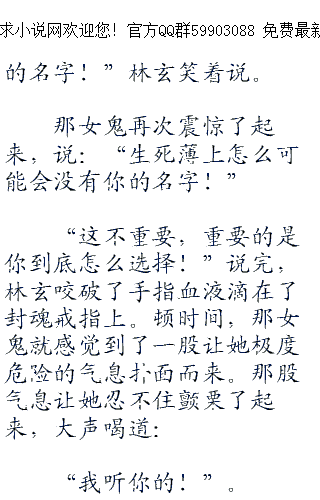 求小说网欢迎您！官方QQ群59903088 免费最新
的名字！”林玄笑着说。
那女鬼再次震惊了起
来，说：“生死薄上怎么可
能会没有你的名字！”
“这不重要，重要的是
你到底怎么选择！”说完，
林玄咬破了手指血液滴在了
封魂戒指上。顿时间，那女
鬼就感觉到了一股让她极度
危险的气息扑面而来。那股
气息让她忍不住颤栗了起
来，大声喝道：
“我听你的！”。